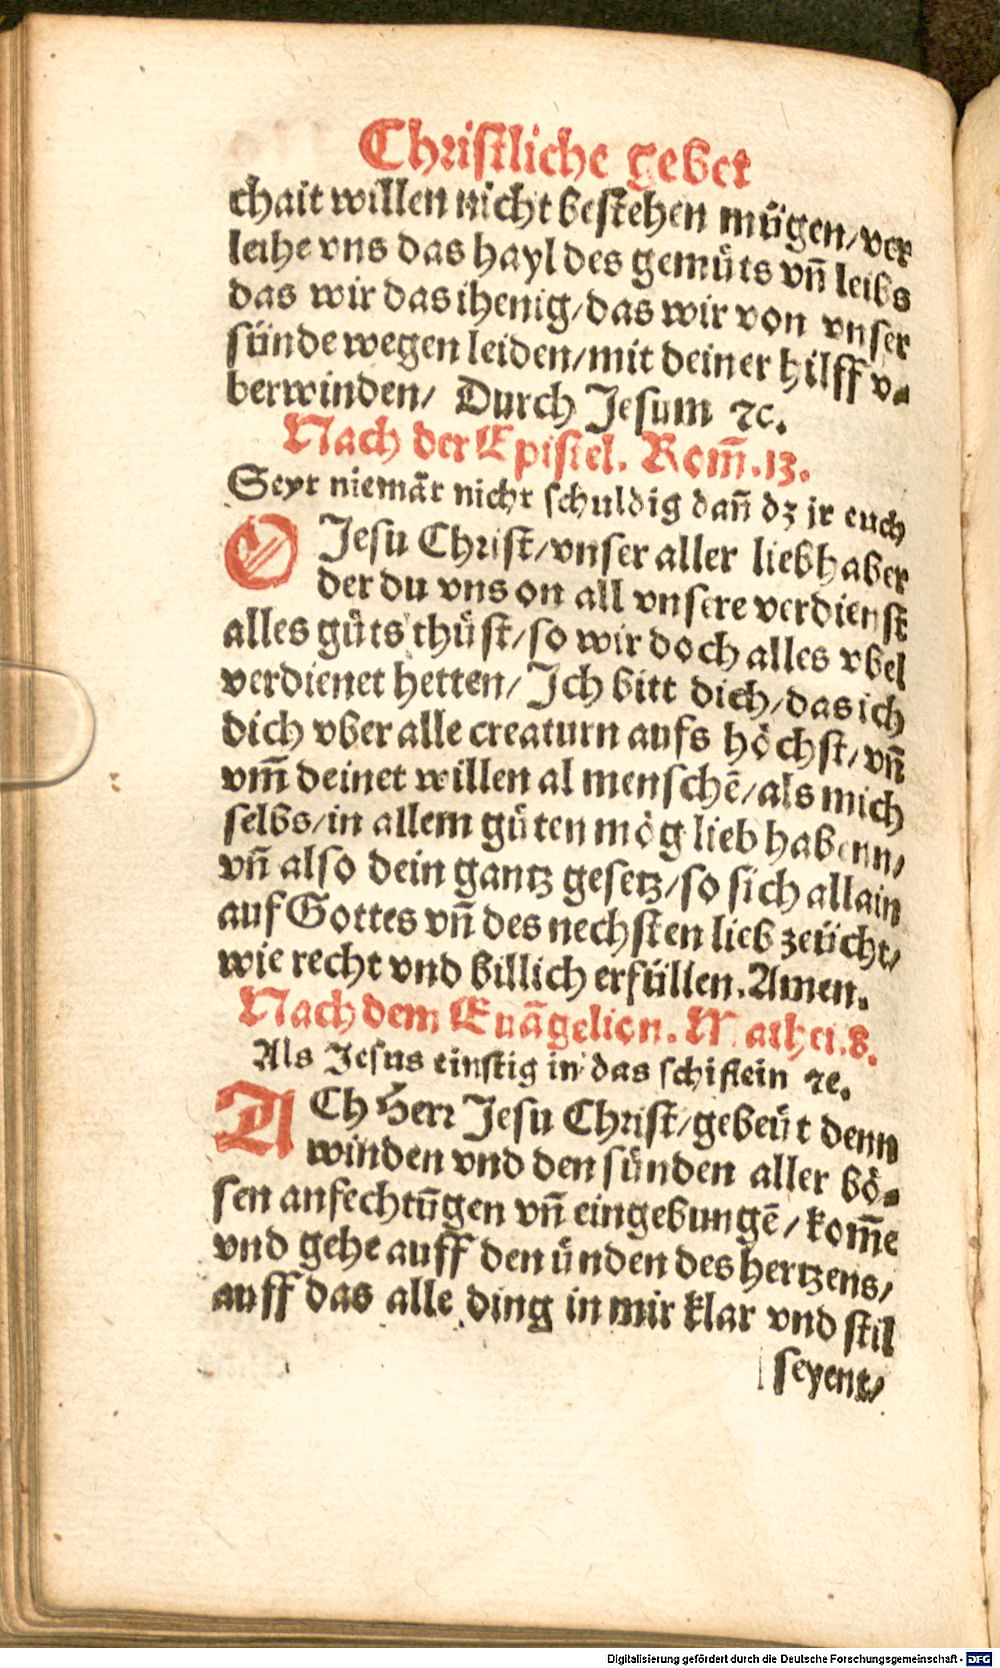 Christliche gebet
chait willen nicht bestehen mügen/ver
leihe vns das hayl des gemüts vñ leibs
das wir das ihenig/das wir von vnser
sünde wegen leiden/mit deiner hilff v-
berwinden/ Durch Jesum ⁊c.
Nach der Epistel. Rom̃.13.
Seyt niemãt nicht schuldig dañ dz jr euch
O Jesu Christ/vnser aller liebhaber
der du vns on all vnsere verdienst
alles güts thüst/so wir doch alles vbel
verdienet hetten/ Ich bitt dich/das ich
dich vber alle creaturn aufs höchst/vñ
vm̃ deinet willen al menschẽ/als mich
selbs/in allem güten mög lieb habenn/
vñ also dein gantz gesetz/so sich allain
auf Gottes vñ des nechsten lieb zeücht/
wie recht vnd billich erfüllen.Amen.
Nach dem Euãgelion. Mathei.8.
Als Jesus einstig in das schiflein ⁊c.
ACh Herr Jesu Christ/gebeüt denn
winden vnd den sünden aller bö-
sen anfechtũgen vñ eingebungẽ/kom̃e
vnd gehe auff den ünden des hertzens/
auff das alle ding in mir klar vnd stil
seyent/
Digitalisierung gefördert durch die Deutsche Forschungsgemeinschaft - DFG